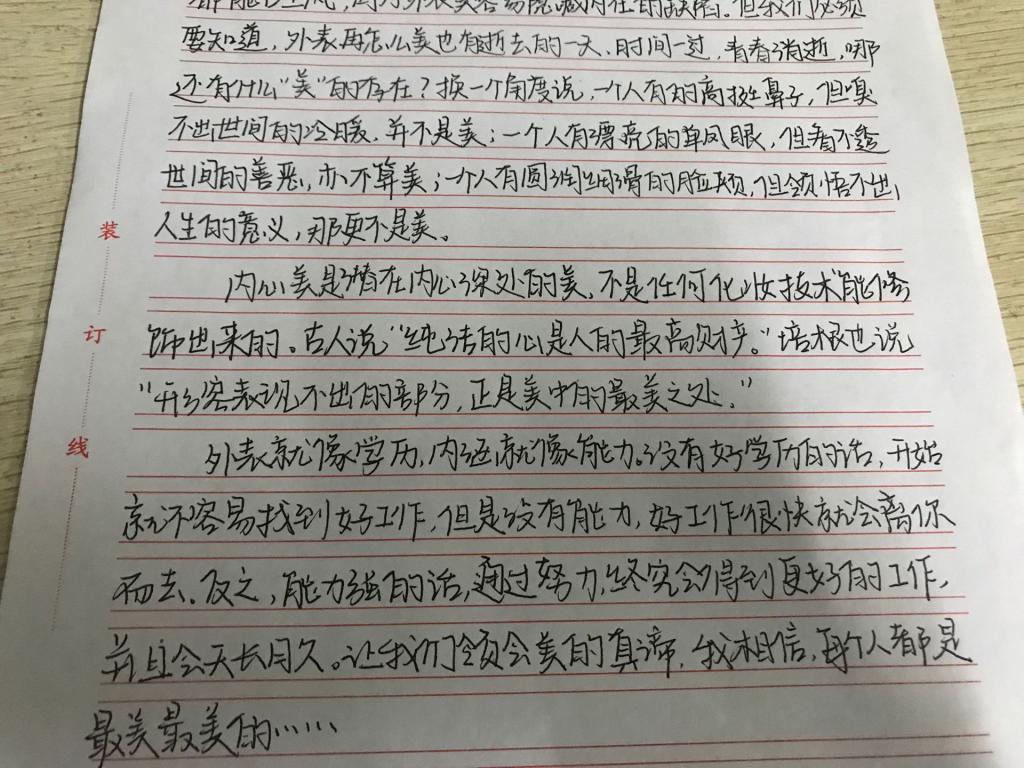 都能占上风,因为外表美容易隐藏内在的缺陷。但我们必须
要知道,外表再怎么美也有逝去的一天,时间一过,青春消逝,哪
还有什么“美”的存在?换一个角度说,一个人有好的高挺鼻子,但嗅
不出世间的冷暖,并不是美;一个人有漂亮的单凤眼,但看不透
世间的善恶,亦不算美;一个人有圆润细滑的脸颊,但领悟不出
人生的意义,那更不是美。
装
内心美是潜在内心深处的美,不是任何化妆技术能修
订
饰出来的。古人说“纯洁的心是人的最高财产。”培根也说
“形容表现不出的部分,正是美中的最美之处。”
线
外表就像学历,内涵就像能力。没有好学历的话,开始
就不容易找到好工作,但是没有能力,好工作很快就会离你
而去。反之,能力强的话,通过努力,终究会得到更好的工作,
并且会天长日久。让我们领会美的真谛,我相信,每个人都是
最美最美的……